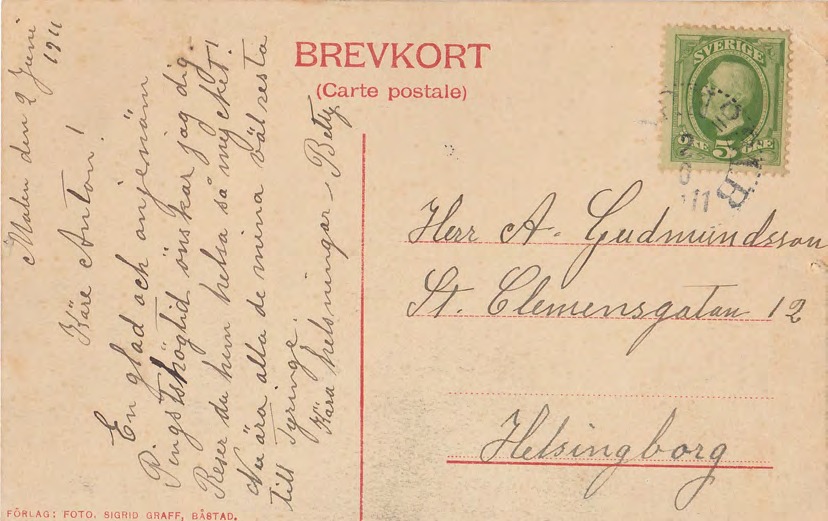 BREVKORT
(Carte postale)
SVERIGE
ÖRE 5 ÖRE
11
Malen den 2 Juni
1911
Käre Anton!
En glad och anjenäm
Pingstshögtid önskar jag dig.
Reser du hem helsa så mycket!
Nu ära alla de mina väl resta
till Tyringe.
Kära helsningar - Betty
Herr A. Gudmundsson
St. Clemensgatan 12
Helsingborg
FÖRLAG: FOTO. SIGRID GRAFF, BÅSTAD.